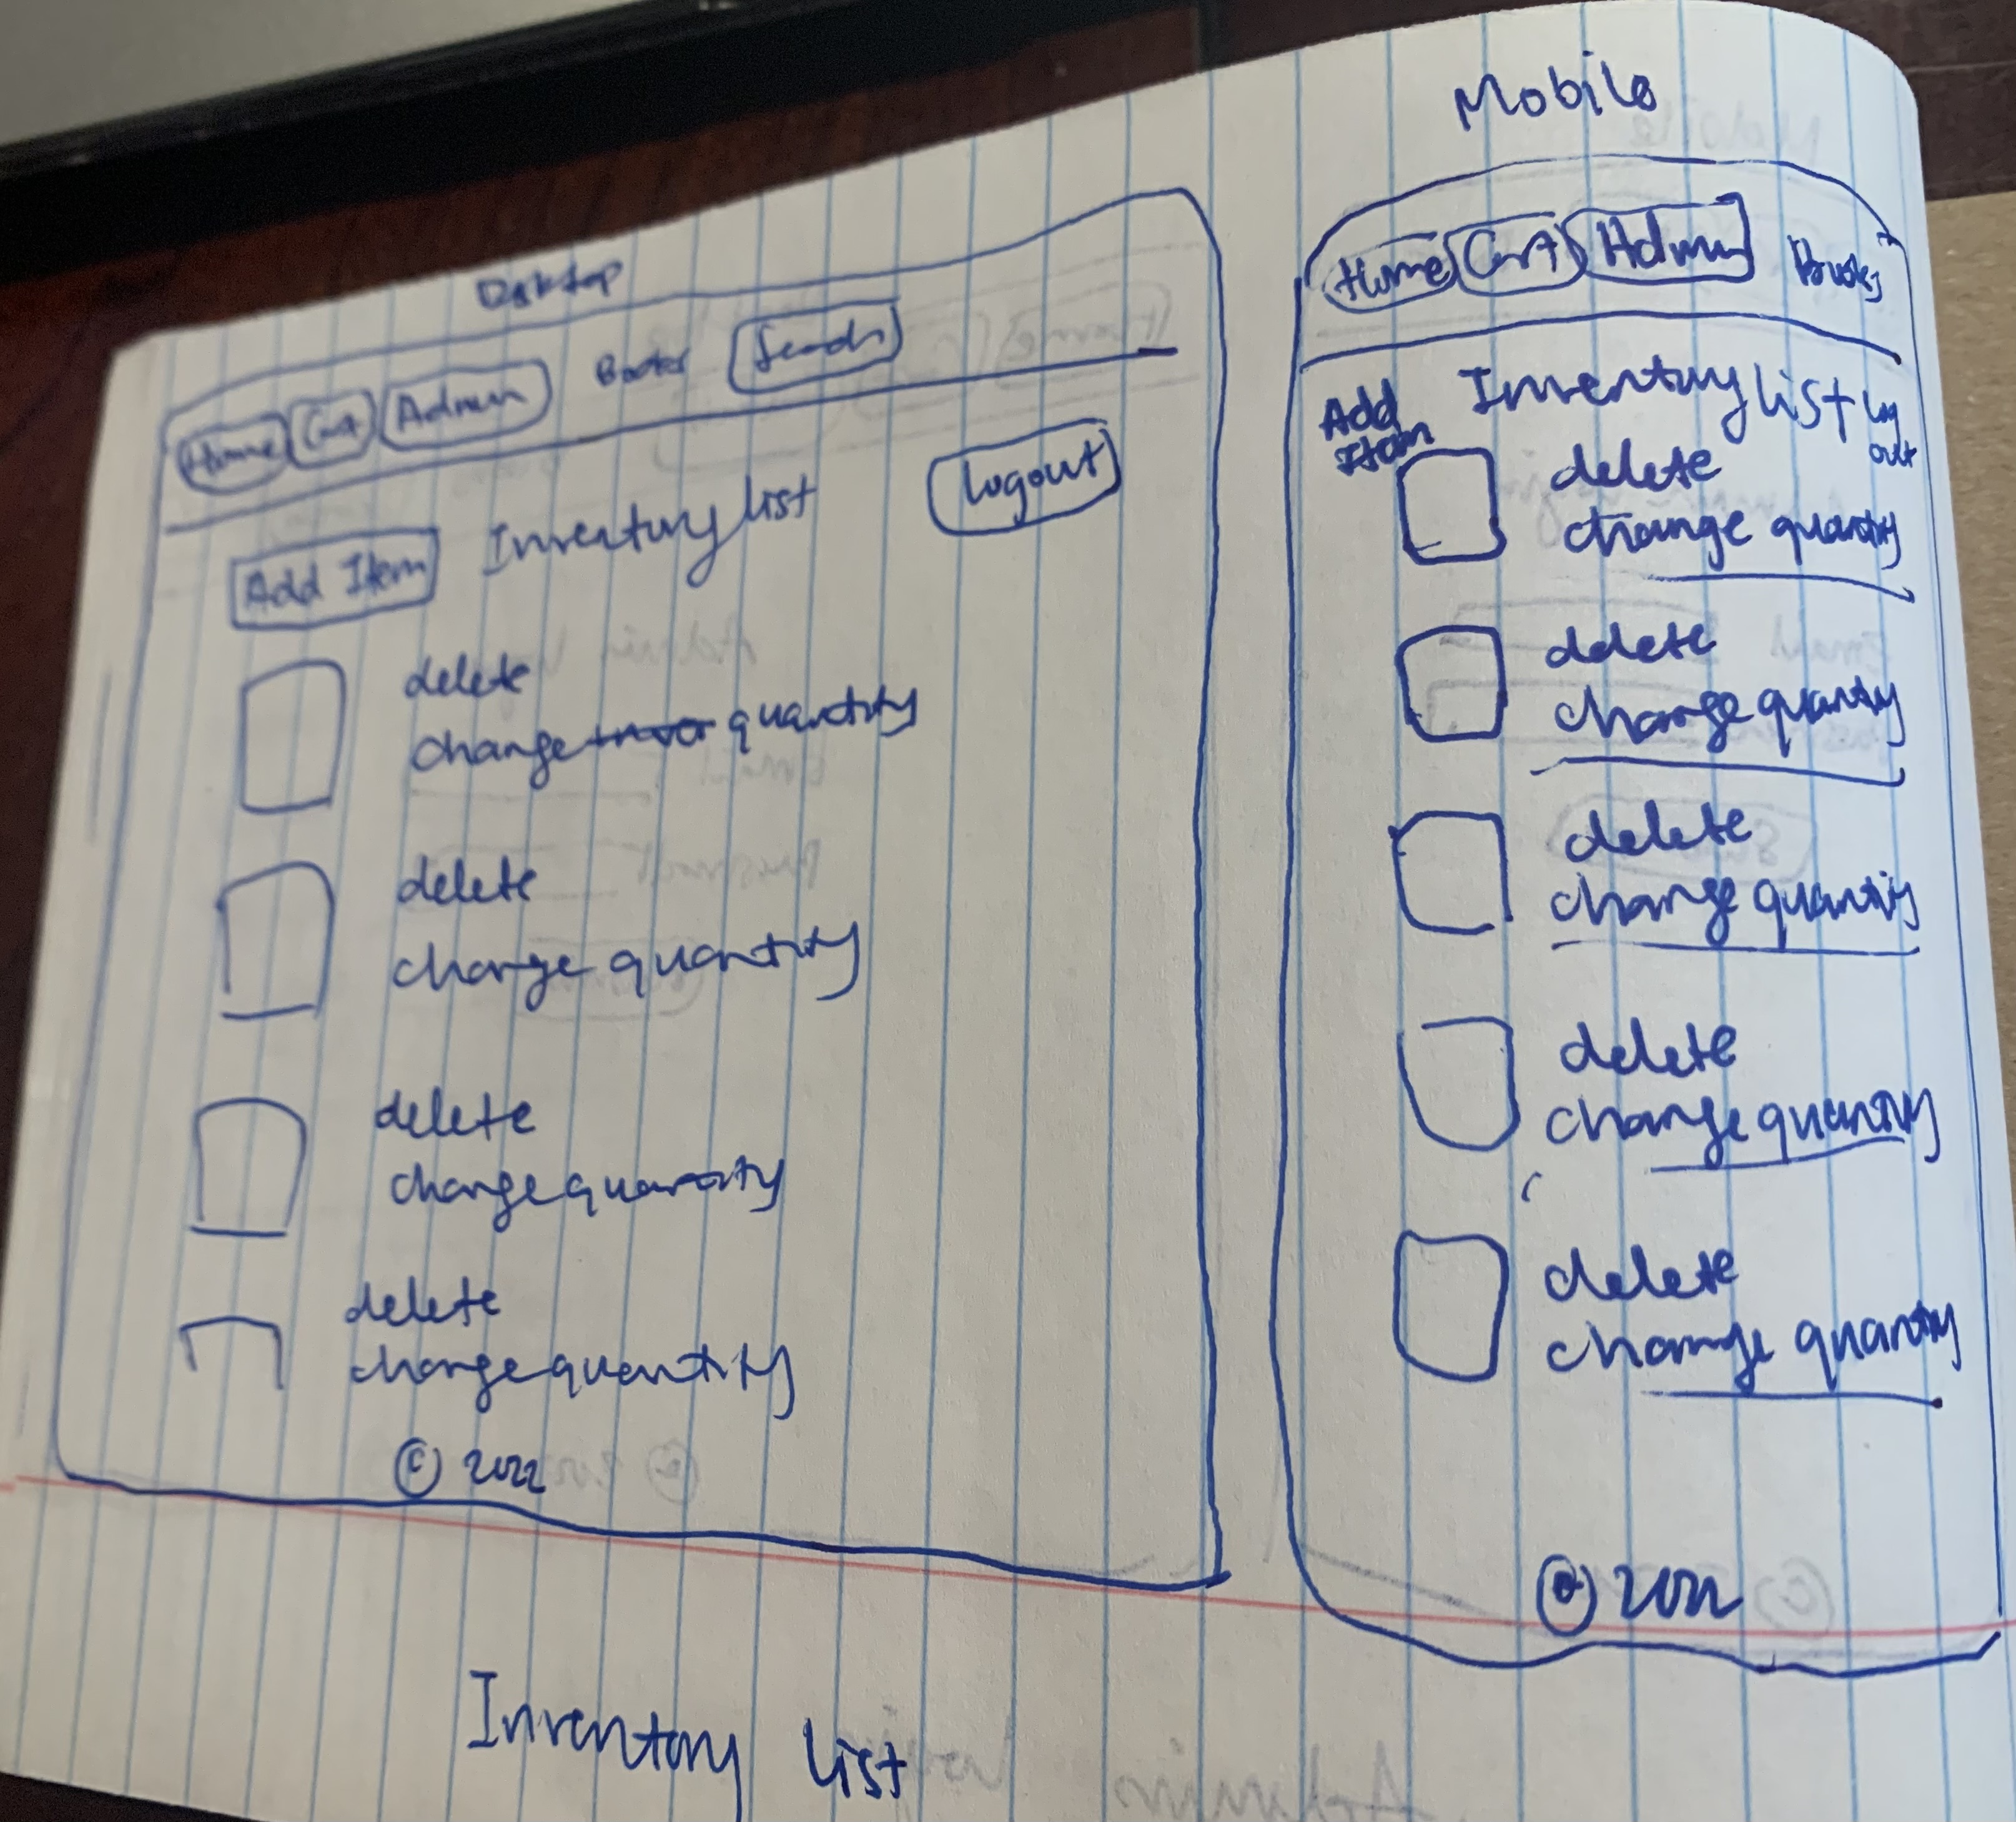 Desktop
Home Cart Admin Books Search
Add Item Inventory list logout
delete
change quantity
delete
change quantity
delete
change quantity
delete
change quantity
© 2022
Mobile
Home Cart Admin Books
Add Item Inventory list Log out
delete
change quantity
delete
change quantity
delete
change quantity
delete
change quantity
delete
change quantity
© 2022
Inventory list